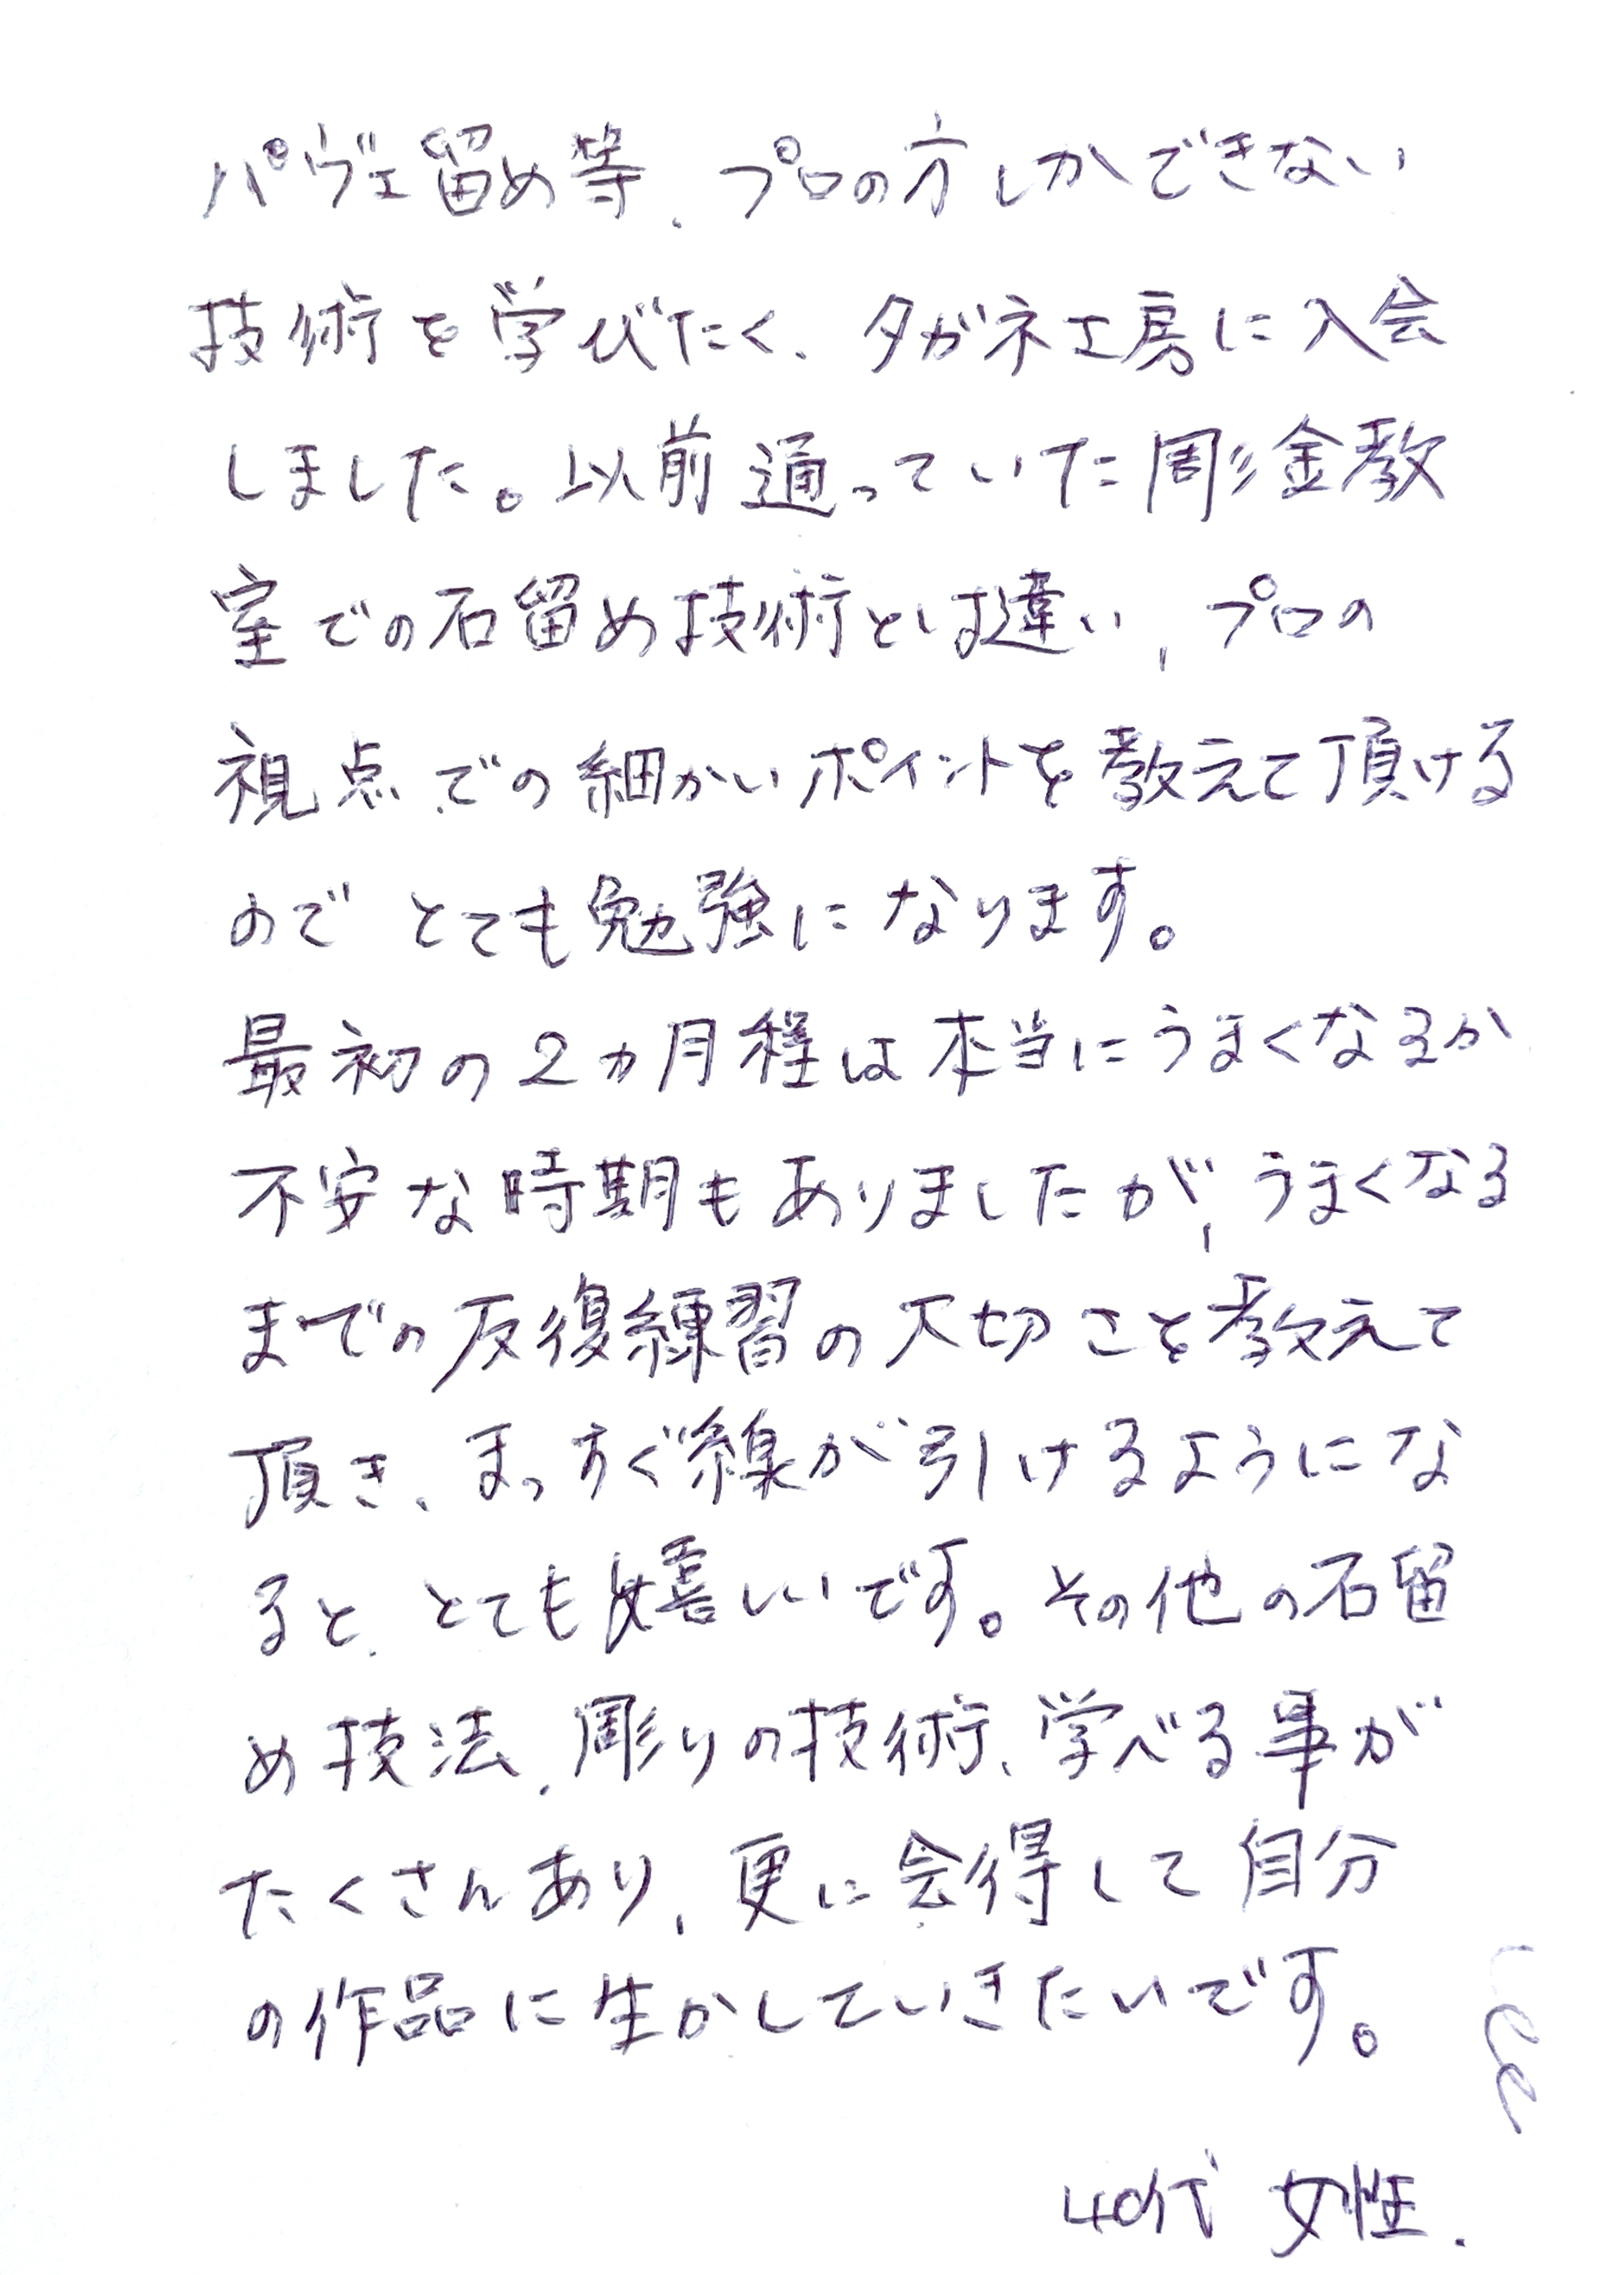 パヴェ留め等、プロの方しかできない
技術を学びたく、タガネ工房に入会
しました。以前通っていた彫金教
室での石留め技術とは違い、プロの
視点での細かいポイントを教えて頂ける
ので とても勉強になります。
最初の2ヵ月程は本当にうまくなるか
不安な時期もありましたが、うまくなる
までの反復練習の大切さを教えて
頂き、まっすぐ線が引けるようにな
ると、とても嬉しいです。その他の石留
め技法、彫りの技術、学べる事が
たくさんあり、更に会得して自分
の作品に生かしていきたいです。
40代 女性.